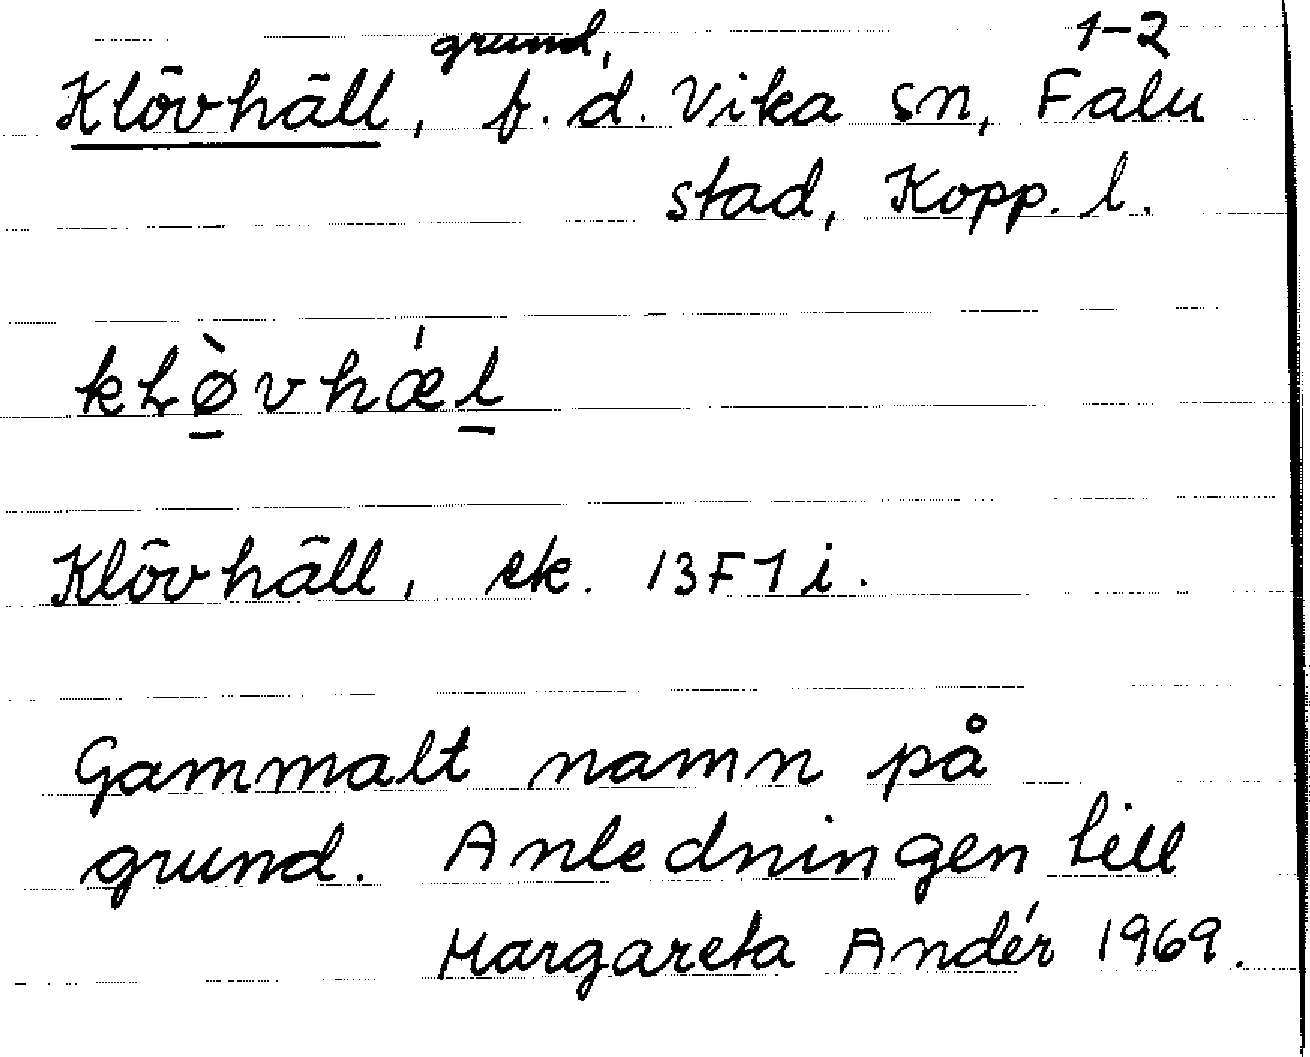 grund, 1-2
Klövhäll, f.d. Vika sn, Falu
stad, Kopp. l.
kʟø̠̀vhǽl̠
Klövhäll, ek. 13F1i.
Gammalt namn på
grund. Anledningen till
Margareta Andér 1969.